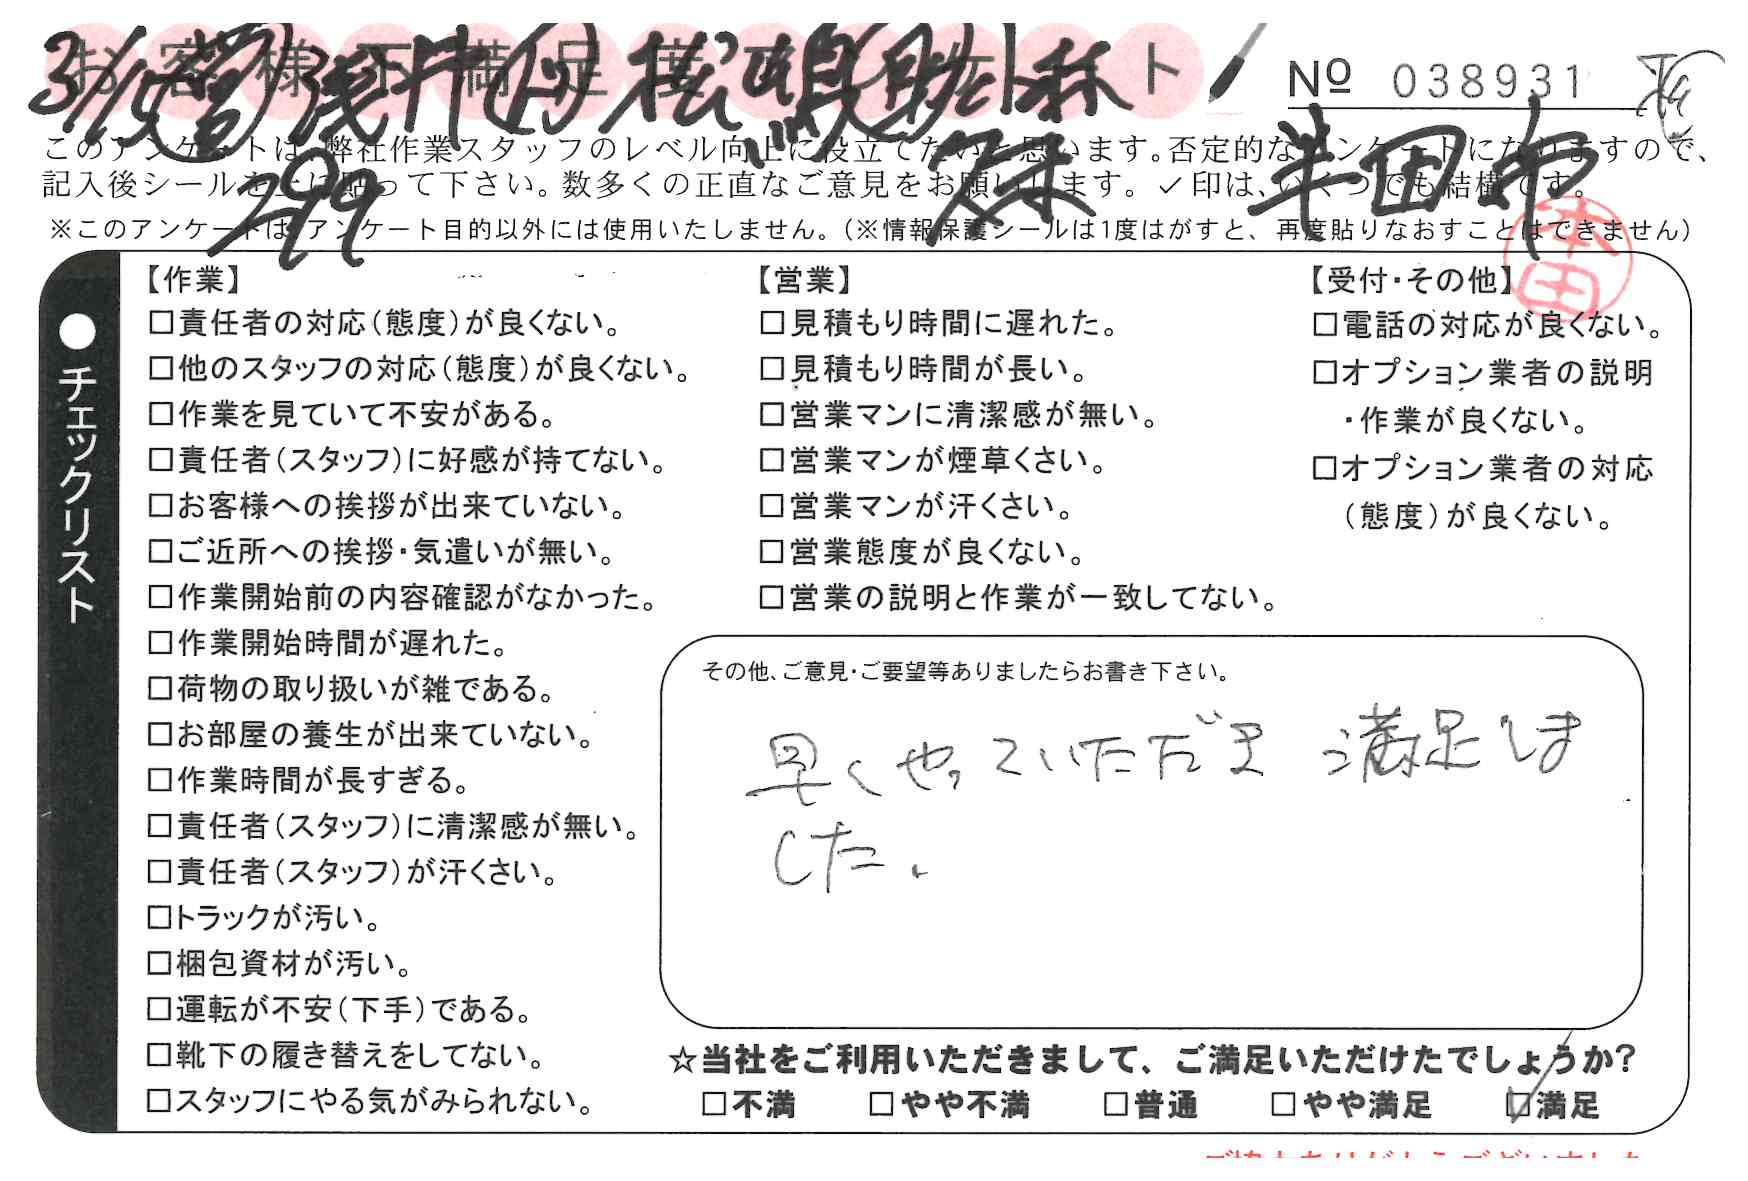 お客様不満足度アンケート
№ 038931
3/1 営 浅井 作 松嶋 助 小林
299
半田市
本田
このアンケートは、弊社作業スタッフのレベル向上に役立てたいと思います。否定的なアンケートになりますので、
記入後シールを上に貼って下さい。数多くの正直なご意見をお願いします。✓印は、いくつでも結構です。
※このアンケートは、アンケート目的以外には使用いたしません。(※情報保護シールは1度はがすと、再度貼りなおすことはできません)
●チェックリスト
【作業】
□責任者の対応(態度)が良くない。
□他のスタッフの対応(態度)が良くない。
□作業を見ていて不安がある。
□責任者(スタッフ)に好感が持てない。
□お客様への挨拶が出来ていない。
□ご近所への挨拶・気遣いが無い。
□作業開始前の内容確認がなかった。
□作業開始時間が遅れた。
□荷物の取り扱いが雑である。
□お部屋の養生が出来ていない。
□作業時間が長すぎる。
□責任者(スタッフ)に清潔感が無い。
□責任者(スタッフ)が汗くさい。
□トラックが汚い。
□梱包資材が汚い。
□運転が不安(下手)である。
□靴下の履き替えをしてない。
□スタッフにやる気がみられない。
【営業】
□見積もり時間に遅れた。
□見積もり時間が長い。
□営業マンに清潔感が無い。
□営業マンが煙草くさい。
□営業マンが汗くさい。
□営業態度が良くない。
□営業の説明と作業が一致してない。
【受付・その他】
□電話の対応が良くない。
□オプション業者の説明
・作業が良くない。
□オプション業者の対応
(態度)が良くない。
その他、ご意見・ご要望等ありましたらお書き下さい。
早くやっていただき 満足しま
した。
☆当社をご利用いただきまして、ご満足いただけたでしょうか?
□不満 □やや不満 □普通 □やや満足 ☑満足
ご協力ありがとうございました